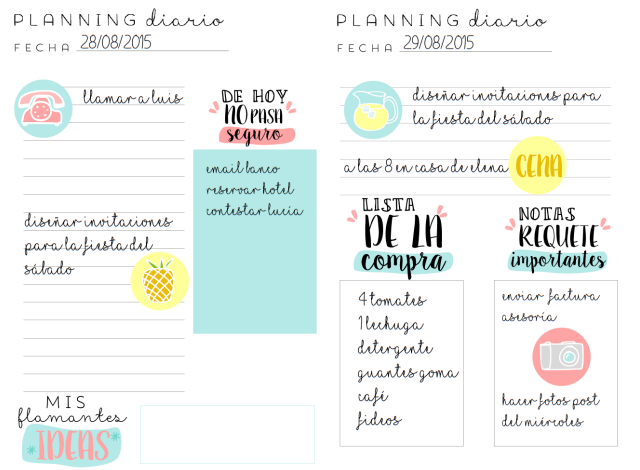 PLANNING diario
FECHA 28/08/2015
llamar a luis
diseñar invitaciones
para la fiesta del
sábado
DE HOY
NO PASA
seguro
email banco
reservar hotel
contestar lucia
MIS
flamantes
IDEAS
PLANNING diario
FECHA 29/08/2015
diseñar invitaciones para
la fiesta del sábado
a las 8 en casa de elena CENA
LISTA
DE LA
compra
4 tomates
1 lechuga
detergente
guantes goma
café
fideos
NOTAS
REQUETE
importantes
enviar factura
asesoría
hacer fotos post
del miércoles